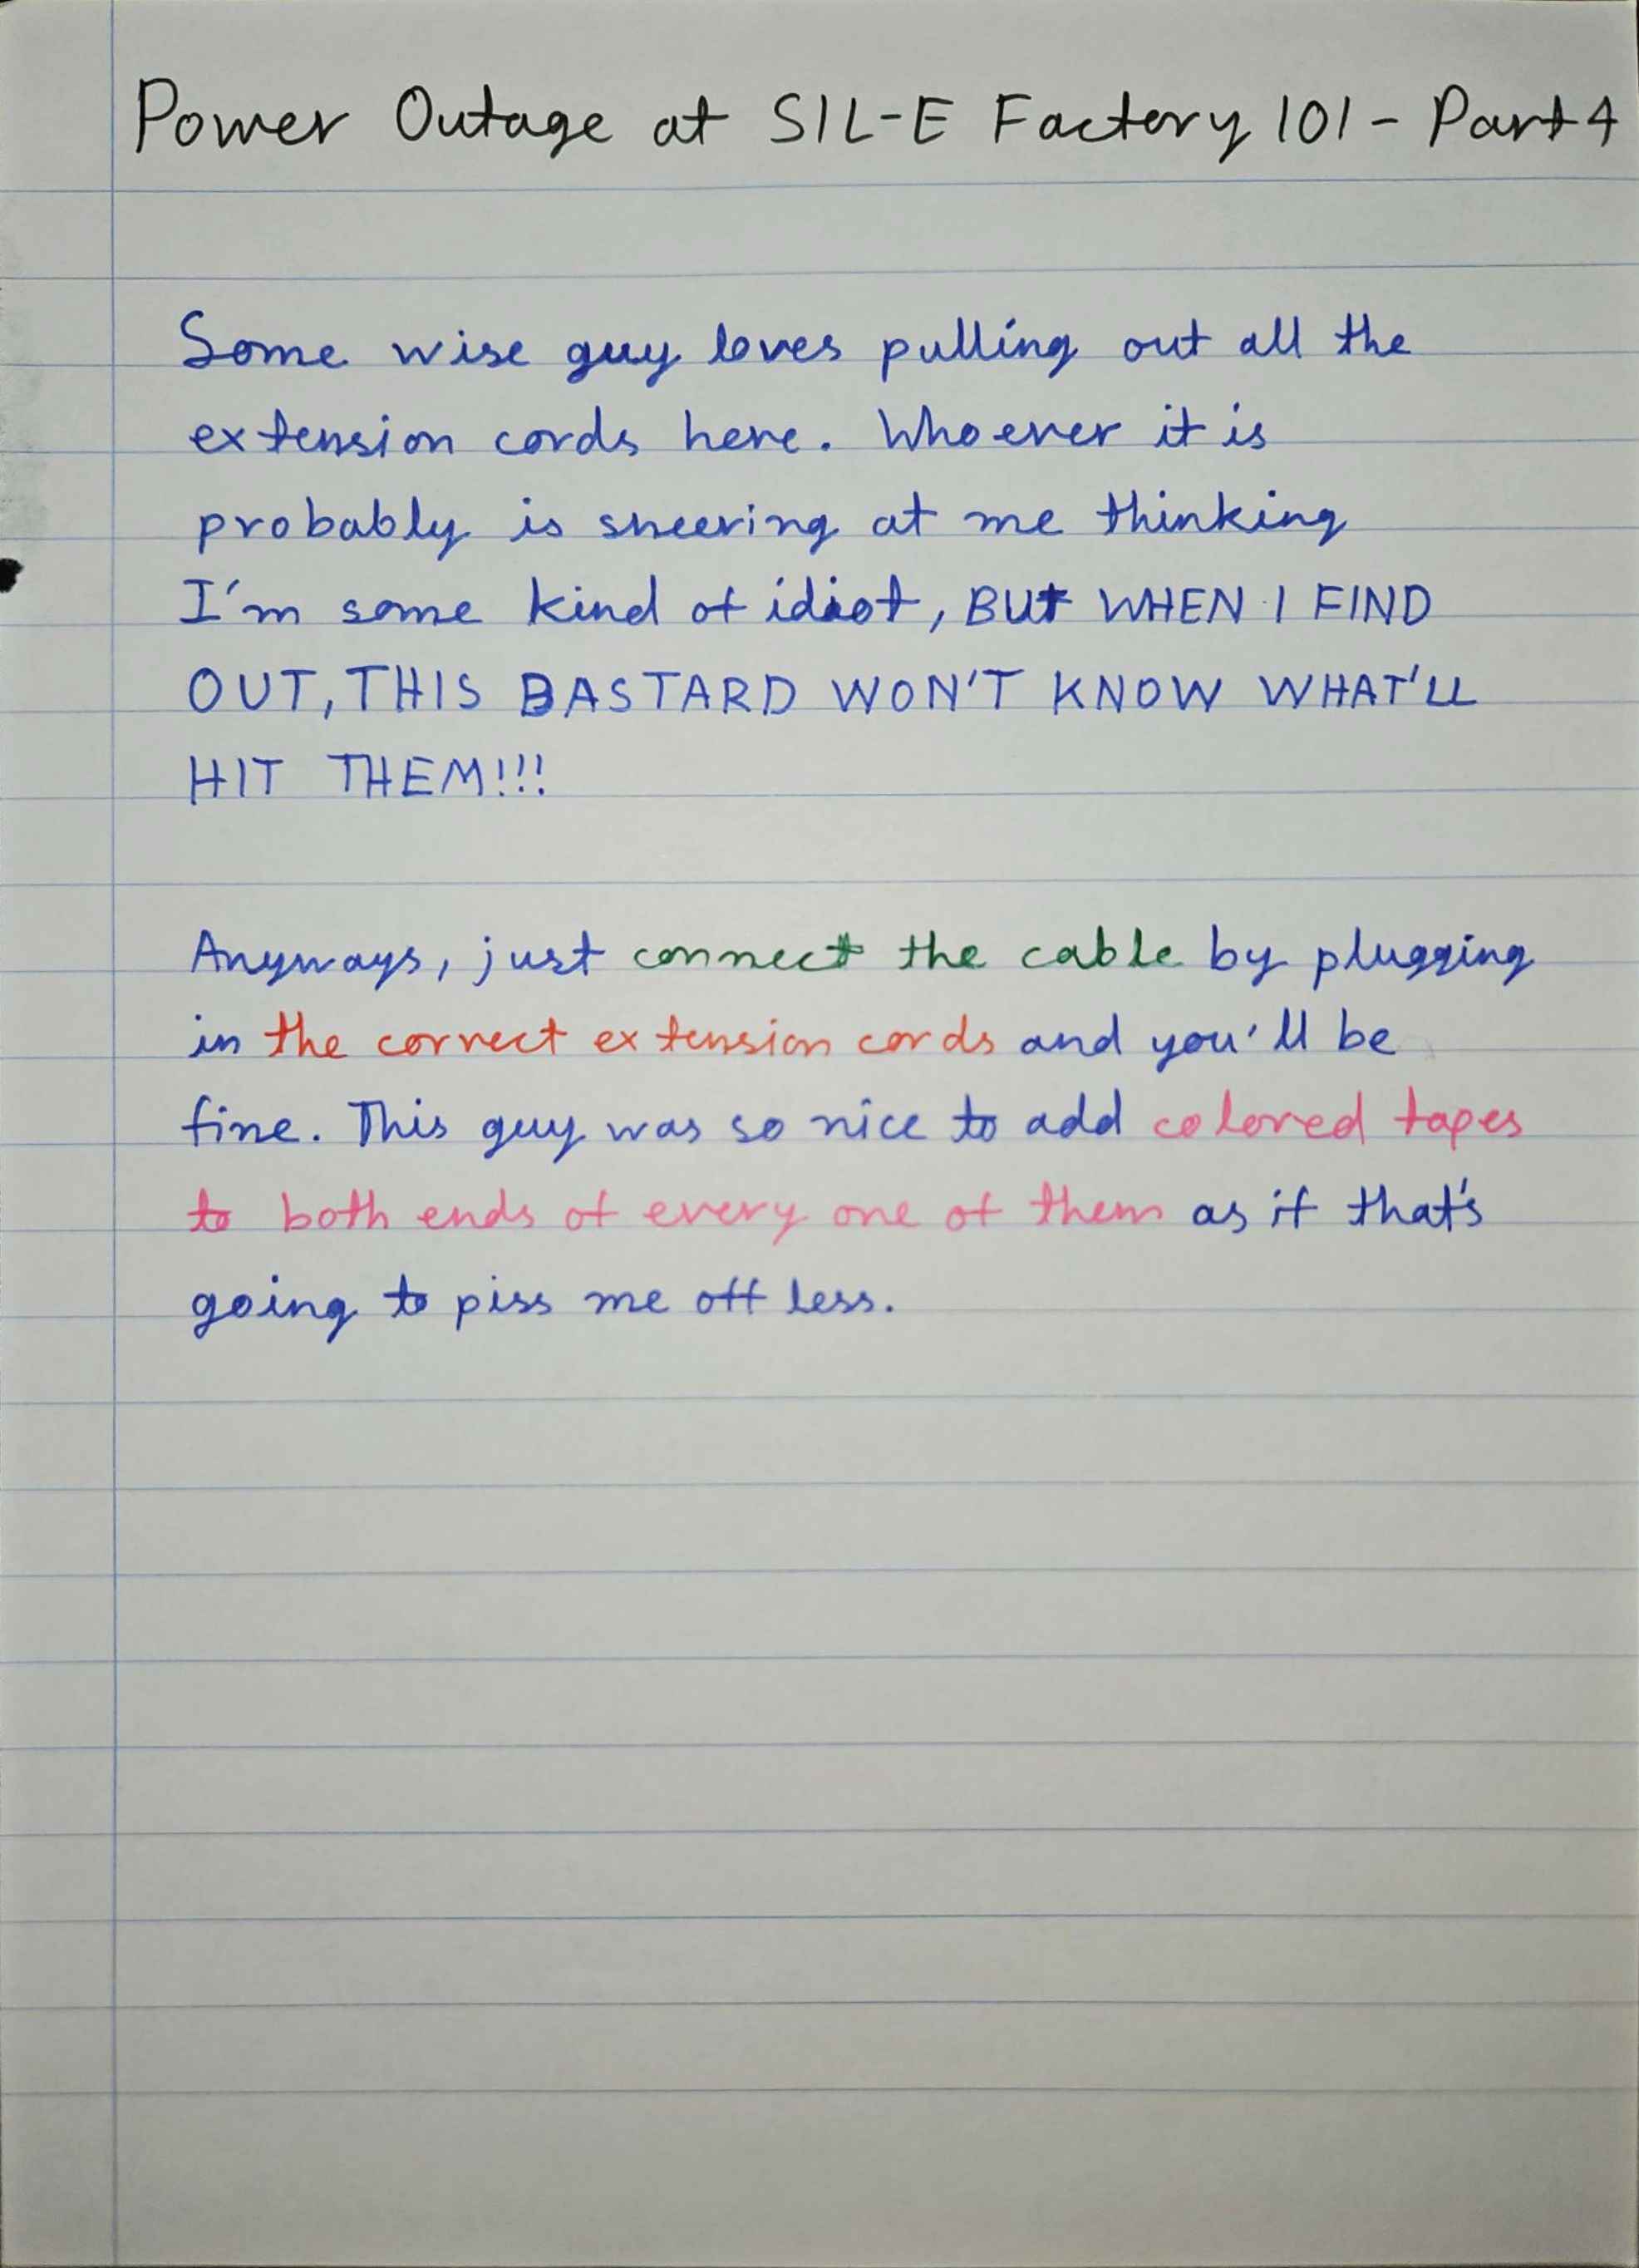 Power Outage at SIL-E Factory 101 - Part 4
Some wise guy loves pulling out all the
extension cords here. Whoever it is
probably is sneering at me thinking
I'm some kind of idiot, BUT WHEN I FIND
OUT, THIS BASTARD WON'T KNOW WHAT'LL
HIT THEM!!!
Anyways, just connect the cable by plugging
in the correct extension cords and you'll be
fine. This guy was so nice to add colored tapes
to both ends of every one of them as if that's
going to piss me off less.